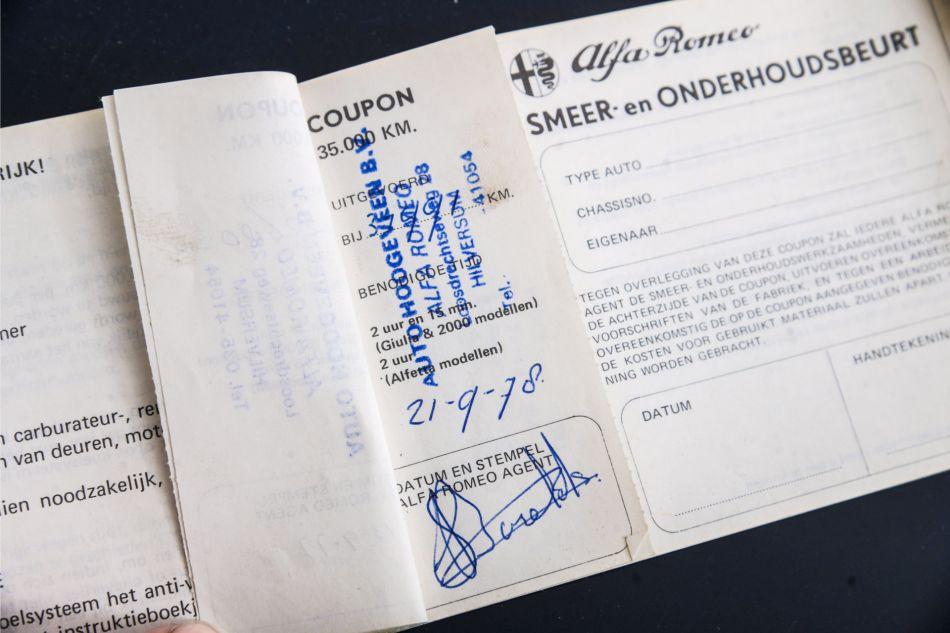 RIJK!
ner
n carburateur-, re
n van deuren, mot
lien noodzakelijk,
E
oelsysteem het anti-v
instruktieboekj
COUPON
35.000 KM.
UITGEVOERD
BIJ KM.
BENODIGDE TIJD
2 uur en 15 min.
(Giulia & 2000 modellen)
2 uur
(Alfetta modellen)
AUTO HOOGEVEEN B.V.
ALFA ROMEO
Loosdrechtseweg 28
HILVERSUM
Tel. 41054
21-9-78.
DATUM EN STEMPEL
ALFA ROMEO AGENT
Alfa Romeo
SMEER- en ONDERHOUDSBEURT
TYPE AUTO
CHASSISNO.
EIGENAAR
TEGEN OVERLEGGING VAN DEZE COUPON ZAL IEDERE ALFA R
AGENT DE SMEER- EN ONDERHOUDSWERKZAAMHEDEN, VERME
DE ACHTERZIJDE VAN DE COUPON, UITVOEREN OVEREENKOM
VOORSCHRIFTEN VAN DE FABRIEK, EN TEGEN EEN ARBE
OVEREENKOMSTIG DE OP DE COUPON AANGEGEVEN BENODIG
DE KOSTEN VOOR GEBRUIKT MATERIAAL ZULLEN APART
NING WORDEN GEBRACHT.
DATUM
HANDTEKENIN